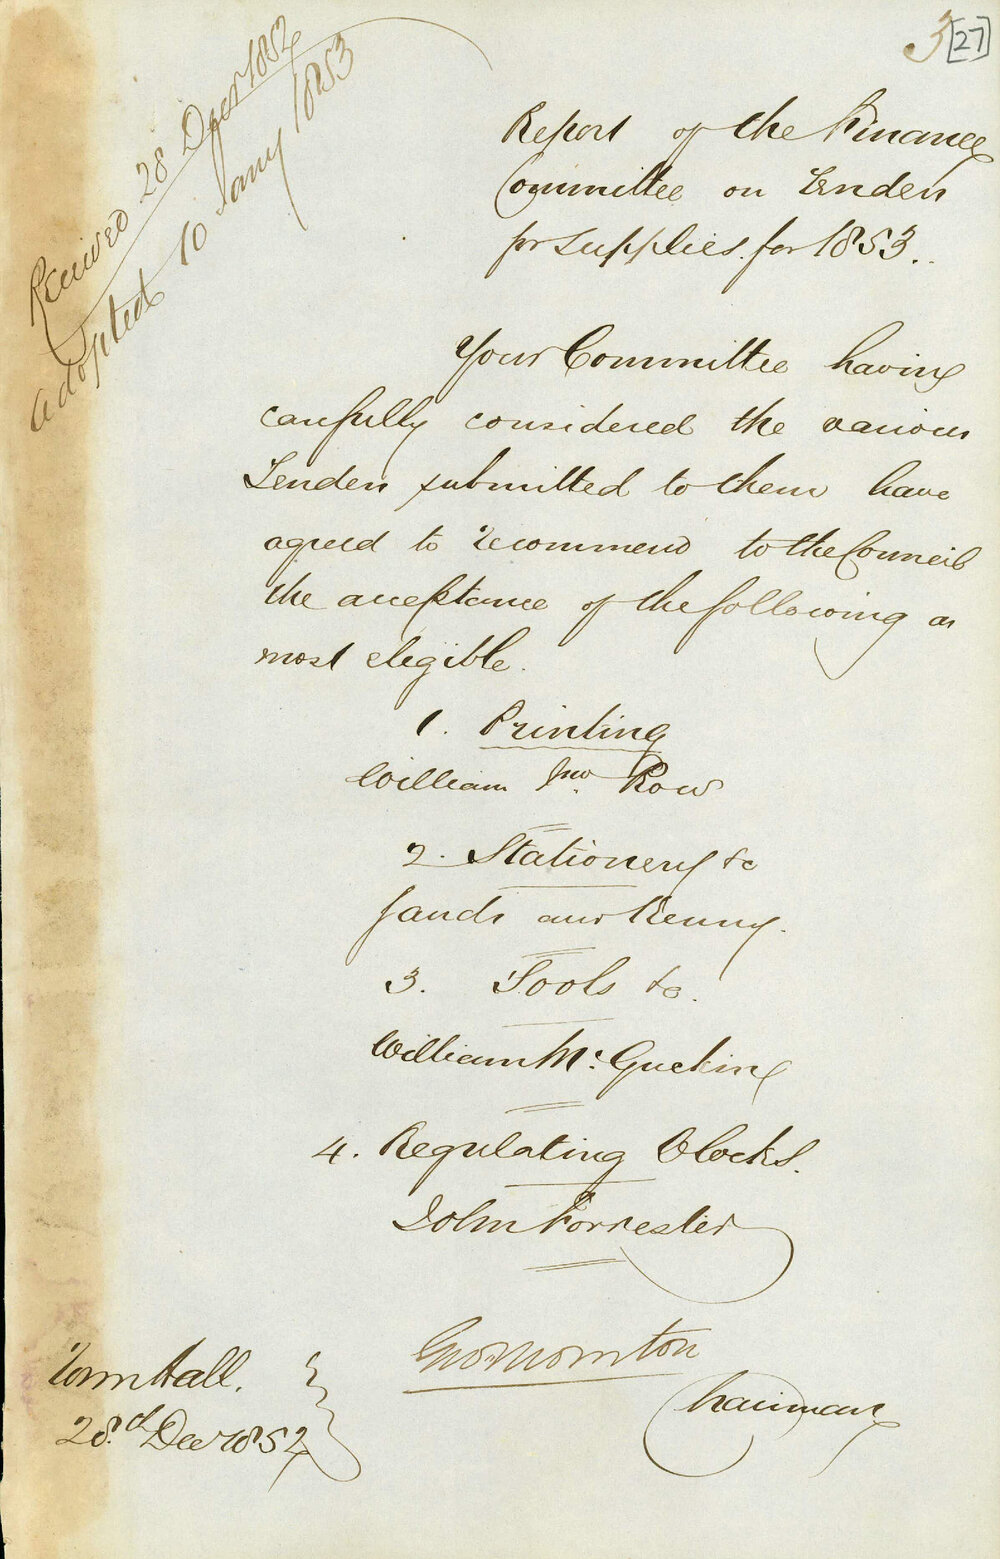 3 [27]
Received 28 Decr 1852
Adopted 10 Jany 1853
Report of the Finance
Committee on Tenders
for supplies for 1853.
Your Committee having
carefully considered the various
Tenders submitted to them have
agreed to recommend to the Council
the acceptance of the following as
most eligible.
1. Printing
William Jno. Row
2. Stationery &c
Sands and Kenny.
3. Tools &c.
William Mc Gucking
4. Regulating Clocks.
John Forrester
Geo Thornton
Chairman
Town Hall.
28.d Decr 1852